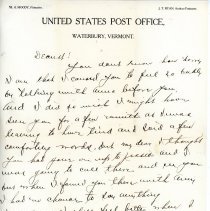 W. G. MOODY, Postmaster. J. T. RYAN, Assistant Postmaster.
UNITED STATES POST OFFICE,
WATERBURY, VERMONT.
Dear
You don't know how sorry
I am that I caused you to feel so badly
by talking with anne before you.
And I did so wish I might have
seen you for a few minutes as I was
leaving to have tried and said a few
comforting words, but my dear I thought
you had gone on up to and I
was going to call there and see you
but when I found you there with
I had no chance to say anything
feel better when I